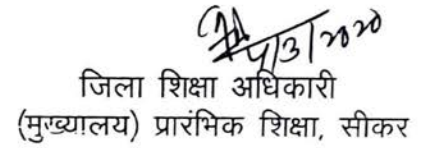 4/3/2020
जिला शिक्षा अधिकारी
(मुख्यालय) प्रारंभिक शिक्षा, सीकर